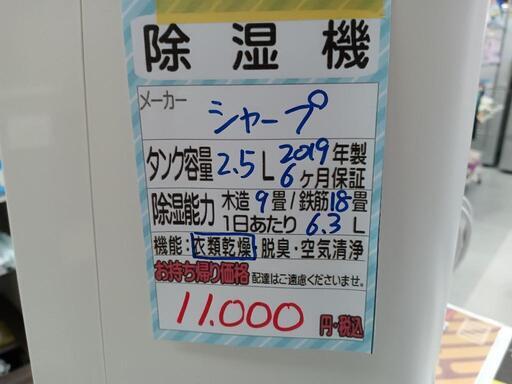 除湿機
メーカー シャープ
タンク容量 2.5L 2019年製
6ヶ月保証
除湿能力 木造9畳/鉄筋18畳
1日あたり 6.3L
機能:衣類乾燥・脱臭・空気清浄
お持ち帰り価格 配達はご遠慮くださいませ。
11.000 円・税込